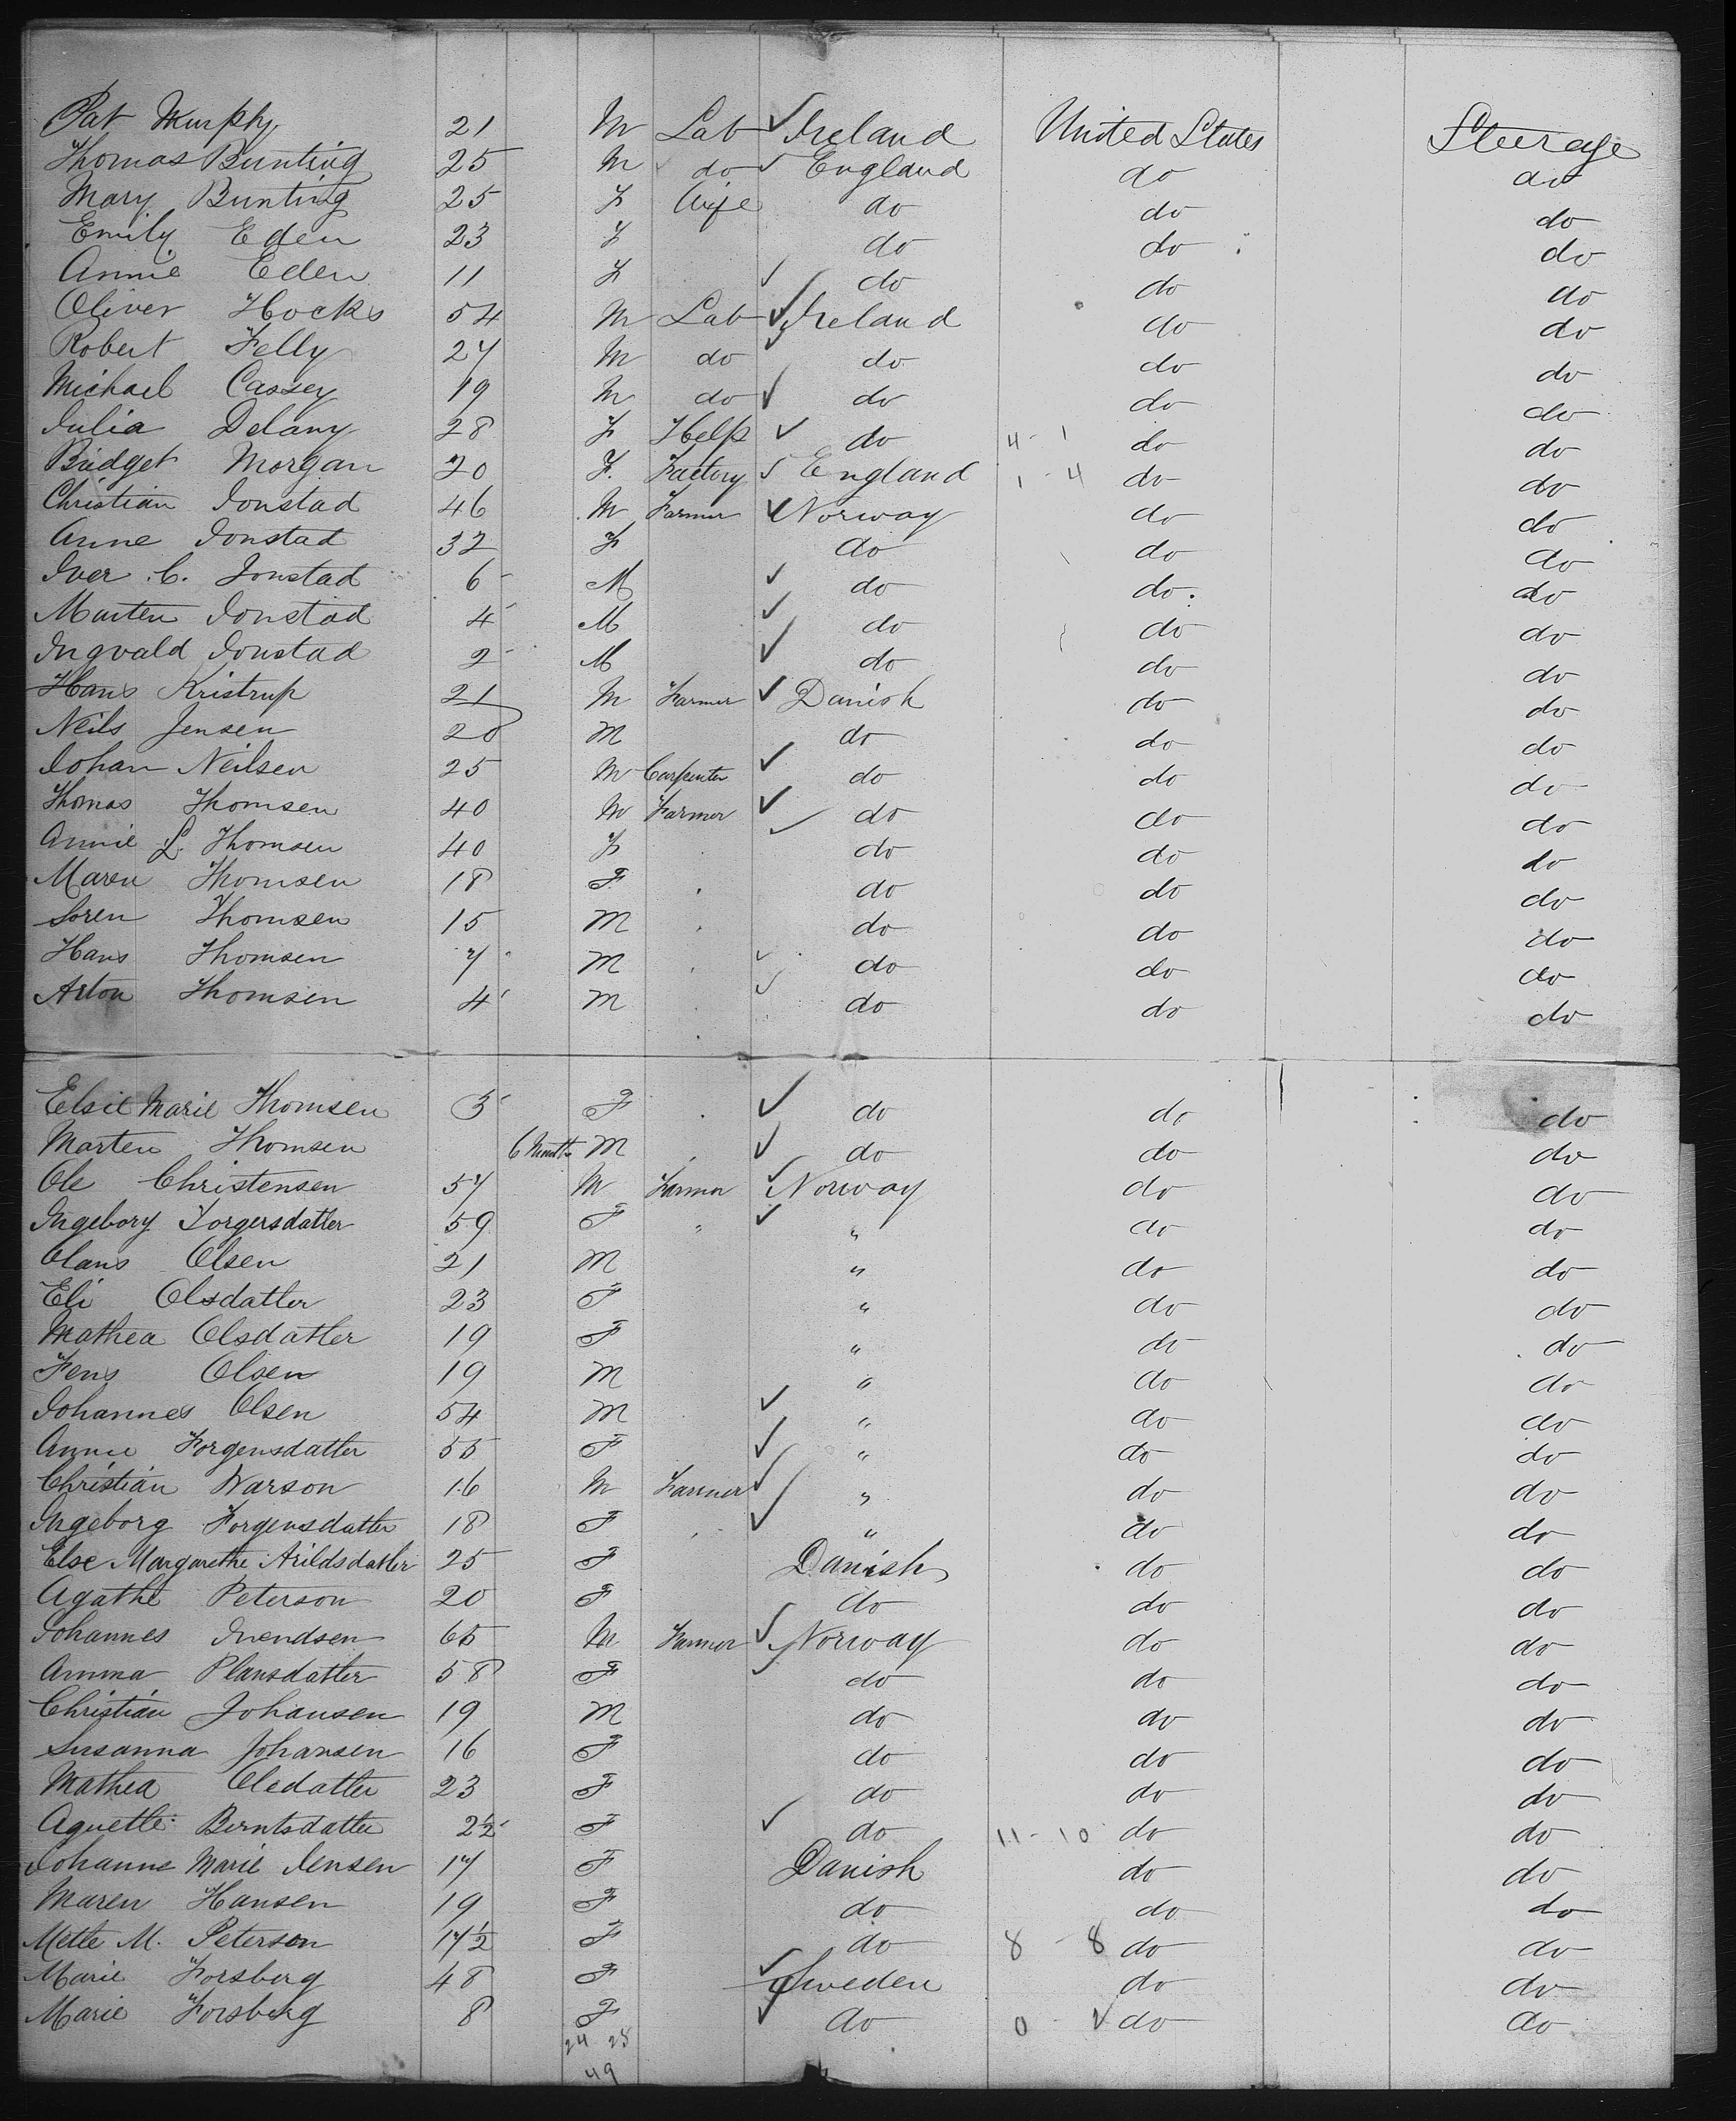 Pat Murphy 21 M Lab Ireland United States Steerage
Thomas Bunting 25 M do England do do
Mary Bunting 25 F Wife do do do
Emily Eden 23 F do do do
Annie Eden 11 F do do do
Oliver Hocks 54 M Lab Ireland do do
Robert Felly 27 M do do do do
Michael Cassey 19 M do do do do
Julia Delany 28 F Help do 4 - 1 do do
Bridget Morgan 20 F. Factory England 1 - 4 do do
Christian Jonstad 46 M Farmer Norway do do
Anne Jonstad 32 F do do do
Iver C. Jonstad 6 M do do do
Marten Jonstad 4 M do do do
Ingvald Jonstad 2 M do do do
Hans Kristrup 21 M Farmer Danish do do
Neils Jensen 28 M do do do
Johan Neilsen 25 M Carpenter do do do
Thomas Thomsen 40 M Farmer do do do
Annie L. Thomsen 40 F do do do
Maren Thomsen 18 F do do do
Soren Thomsen 15 M do do do
Hans Thomsen 7 M do do do
Anton Thomsen 4 M do do do
Elsie Marie Thomsen 3 F do do do
Marten Thomsen 6 Month M do do do
Ole Christensen 57 M Farmer Norway do do
Ingebory Jorgersdatter 59 F " " do do
Claus Olsen 21 M " do do
Eli Olsdatter 23 F " do do
Mathea Olsdatter 19 F " do do
Jens Olsen 19 M " do do
Johannes Olsen 54 M " do do
Annie Jorgensdatter 55 F " do do
Christian Narson 16 M Farmer " do do
Ingeborg Jorgensdatter 18 F " do do
Else Margarethe Arildsdatter 25 F Danish do do
Agathe Peterson 20 F do do do
Johannes Svendsen 65 M Farmer Norway do do
Amma Plansdatter 58 F do do do
Christian Johansen 19 M do do do
Susanna Johansen 16 F do do do
Mathea Olsdatter 23 F do do do
Agnethe Berntsdatter 2½ F do 11 - 10 do do
Johanne Marie Jensen 17 F Danish do do
Maren Hansen 19 F do do do
Mette M. Peterson 17½ F do 8 - 8 do do
Marie Forsberg 48 F Sweden do do
Marie Forsberg 8 F do 0 - do do
24 25
49